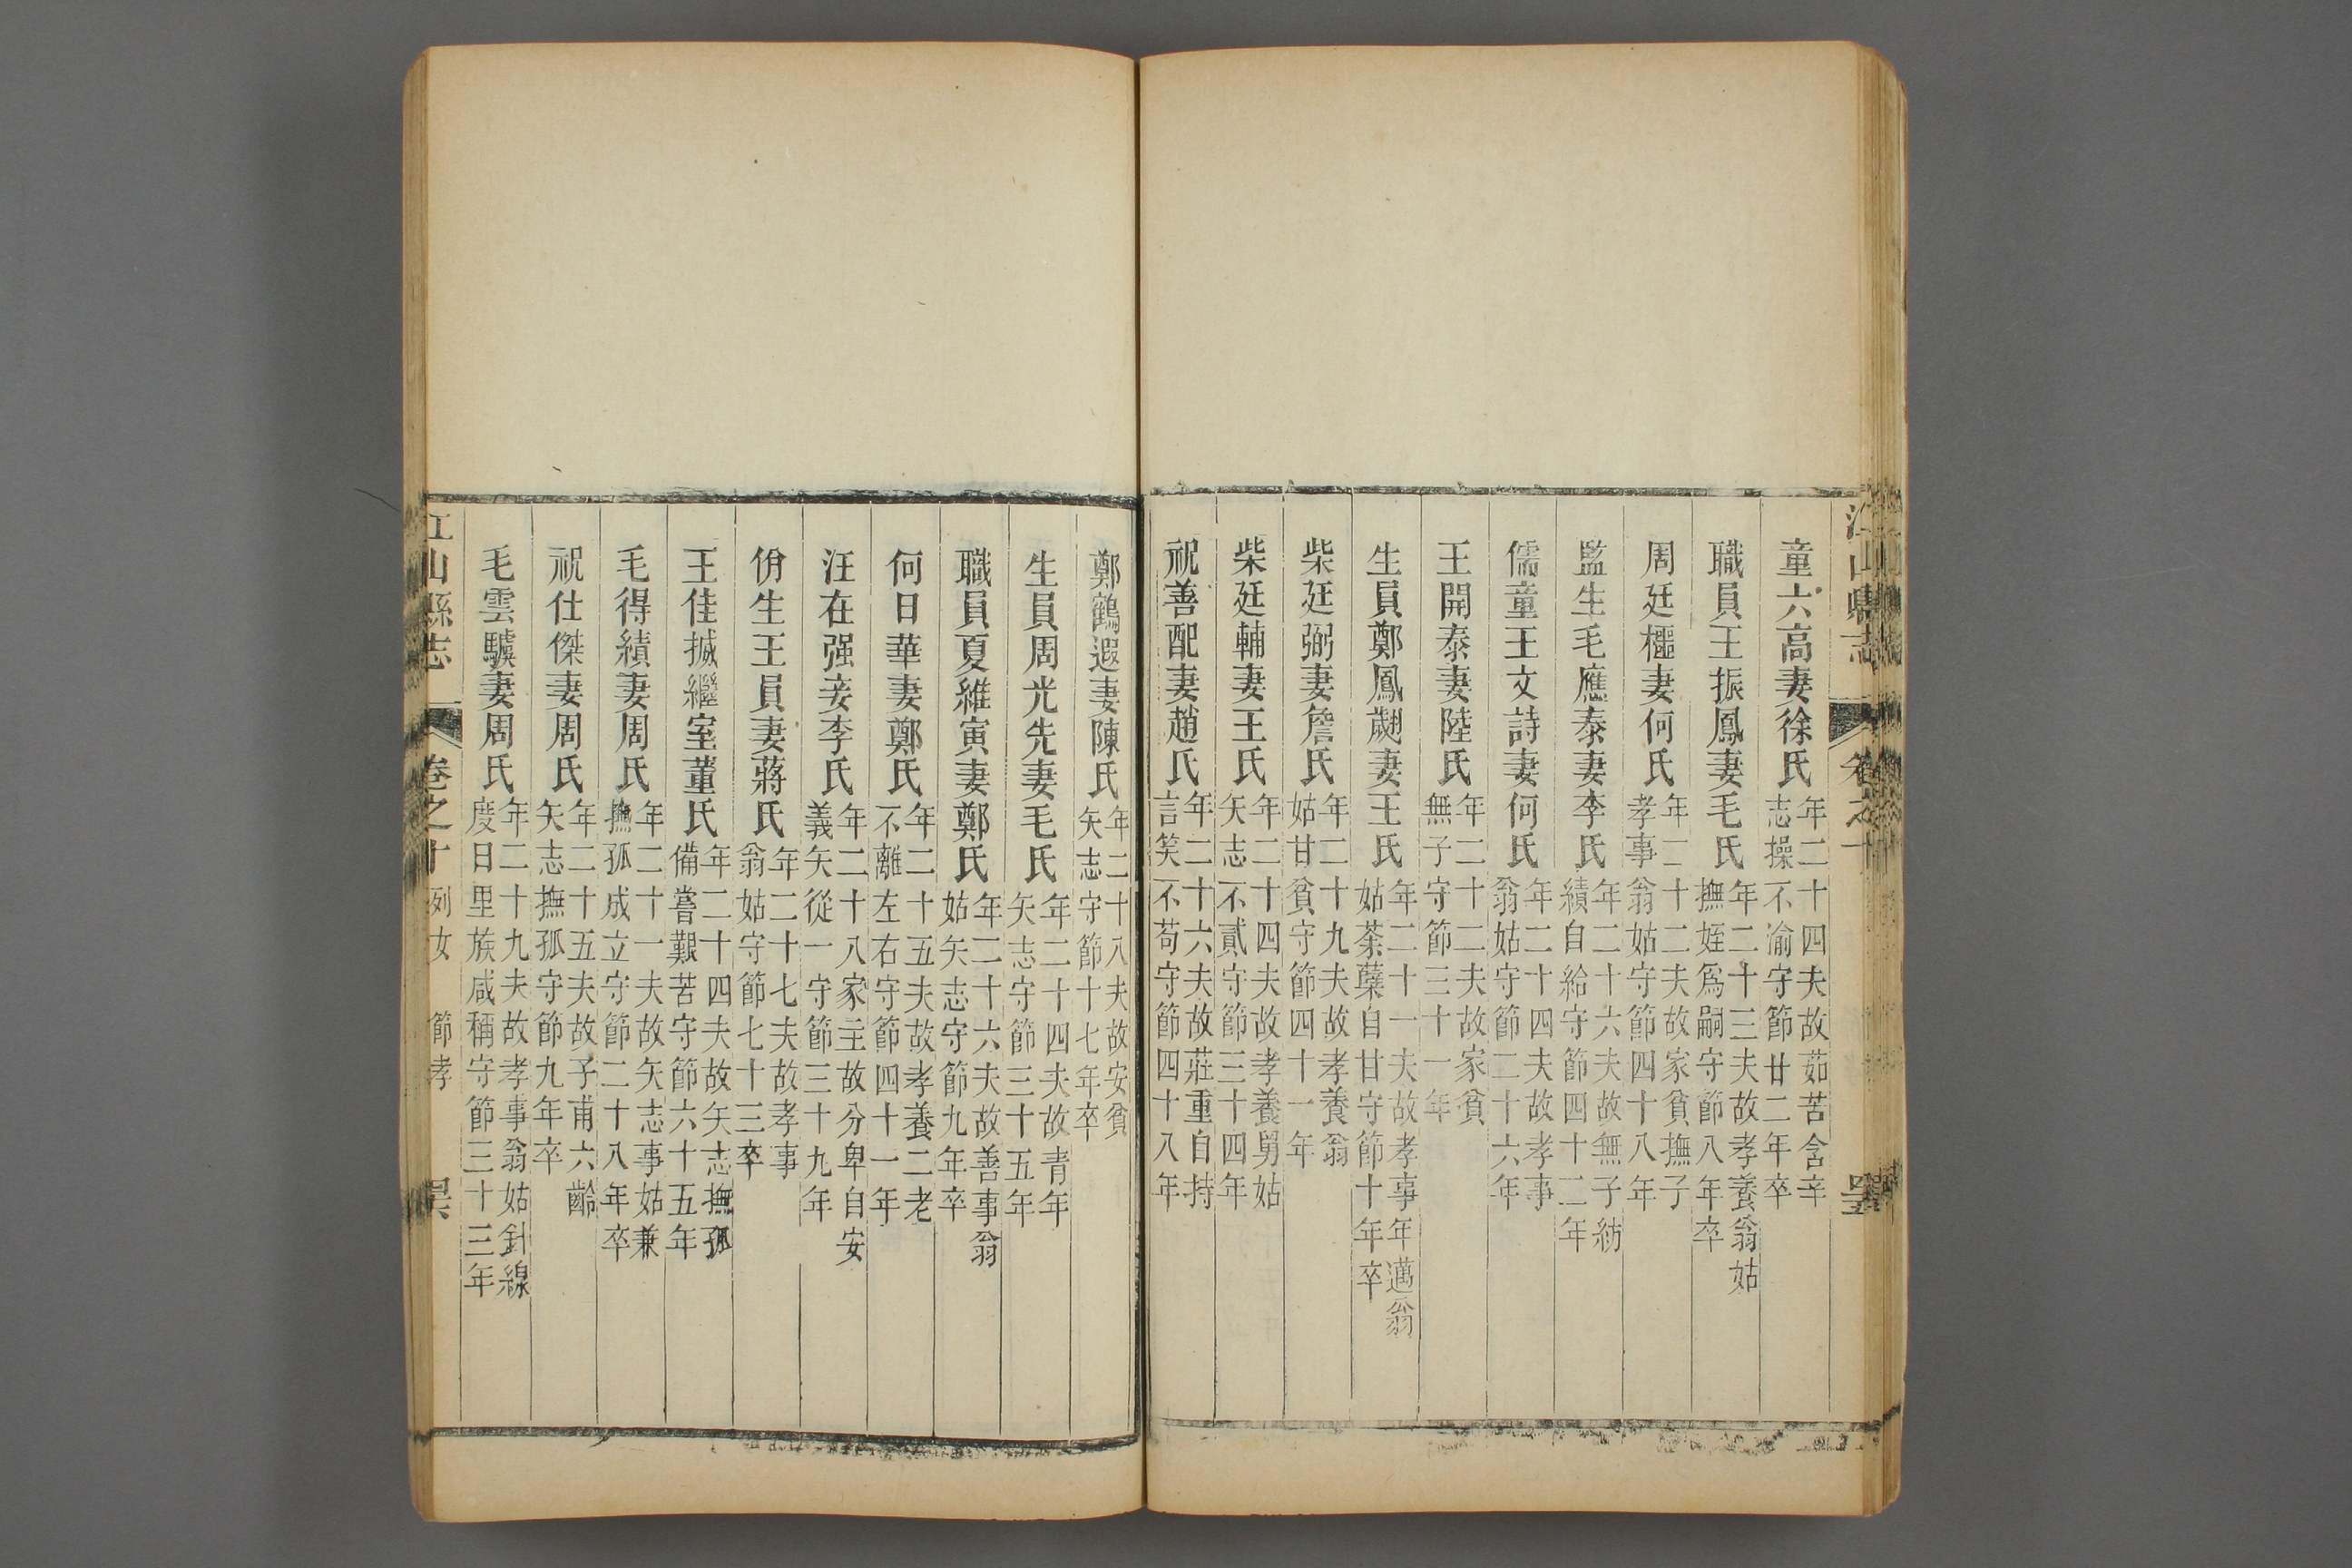 童六高妻徐氏年二十四夫故茹苦含辛
志操不渝守節廿二年卒
職員王振鳳妻毛氏年二十三夫故孝養翁姑
撫姪爲嗣守節八年卒
周廷樞妻何氏年二十二夫故家貧撫子
孝事翁姑守節四十八年
監生毛應泰妻李氏年二十六夫故無子紡
績自給守節四十二年
儒童王文詩妻何氏年二十四夫故孝事
翁姑守節二十六年
王開泰妻陸氏年二十二夫故家貧
無子守節三十一年
生員鄭鳳翽妻王氏年二十一夫故孝事年邁翁
姑荼蘖自甘守節十年卒
柴廷弼妻詹氏年二十九夫故孝養翁
姑甘貧守節四十一年
柴廷輔妻王氏年二十四夫故孝養舅姑
矢志不貳守節三十四年
祝善配妻趙氏年二十六夫故莊重自持
言笑不苟守節四十八年
鄭鶴遐妻陳氏年二十八夫故安貧
矢志守節十七年卒
生員周光先妻毛氏年二十四夫故青年
矢志守節三十五年
職員夏維寅妻鄭氏年二十六夫故善事翁
姑矢志守節九年卒
何日華妻鄭氏年二十五夫故孝養二老
不離左右守節四十一年
汪在强妾李氏年二十八家主故分卑自安
義矢從一守節三十九年
佾生王員妻蔣氏年二十七夫故孝事
翁姑守節七十三卒
王佳瑊繼室董氏年二十四夫故矢志撫孤
備嘗艱苦守節六十五年
毛得績妻周氏年二十一夫故矢志事姑兼
撫孤成立守節二十八年卒
祝仕傑妻周氏年二十五夫故子甫六齡
矢志撫孤守節九年卒
毛雲驥妻周氏年二十九夫故孝事翁姑針線
度日里族咸稱守節三十三年
江山縣志 卷之十 列女 節孝